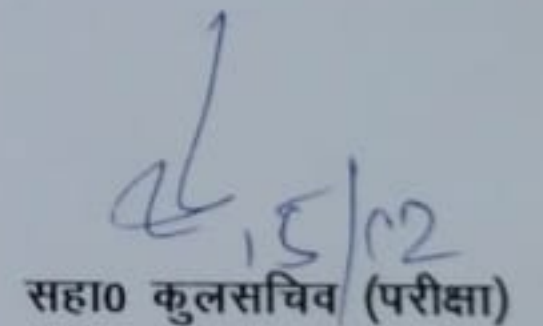 15/02
सहा0 कुलसचिव (परीक्षा)